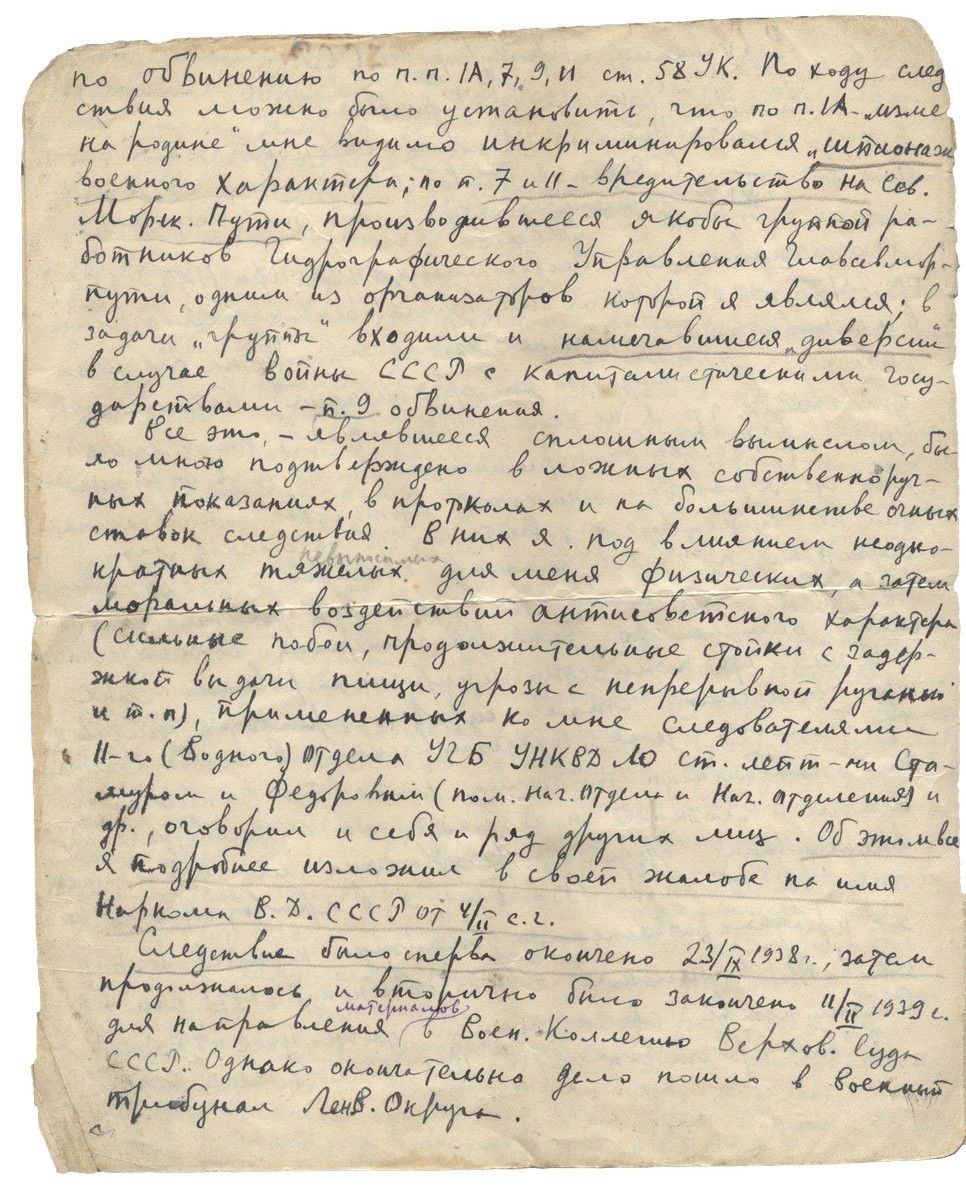 по обвинению по п.п. 1А, 7, 9, 11 ст. 58 УК. По ходу след
ствия можно было установить, что по п. 1А - „изме
на родине" мне видимо инкриминировался „шпионаж
военного характера; по п. 7 и 11 - вредительство на Сев.
Морск. Пути, производившееся якобы группой ра-
ботников Гидрографического Управления Главсевмор-
пути, одним из организаторов которой я являлся; в
задачи „группы" входили и намечавшиеся „диверсии"
в случае войны СССР с капиталистическими госу-
дарствами - п. 9 обвинения.
Все это, - являвшееся сплошным вымыслом, бы-
ло мною подтверждено в ложных собственноруч-
ных показаниях, в протколах и на большинстве очных
ставок следствия В них я под влиянием неодно-
невыносимых
кратных тяжелых для меня физических, а затем
моральных воздействий антисоветского характера
(сильные побои, продолжительные стойки с задер-
жкой выдачи пищи, угрозы с непрерывной руганью
и т.п), примененных ко мне следователями
11-го (Водного) отдела УГБ УНКВД ЛО ст. лейт-ми
и Федоровым (пом. Нач. отдела и Нач. отделения) и
др., оговорил и себя и ряд других лиц. Об этом все
я подробнее изложил в своей жалобе на имя
Наркома В. Д. СССР от 4/II с.г.
Следствие было сперва окончено 23/IX 1938 г.; затем
продолжалось и вторично было закончено 11/II 1939 г.
материалов
для направления в Воен. Коллегию Верхов. Суда
СССР. Однако окончательно дело пошло в военный
трибунал Ленв. Округа.